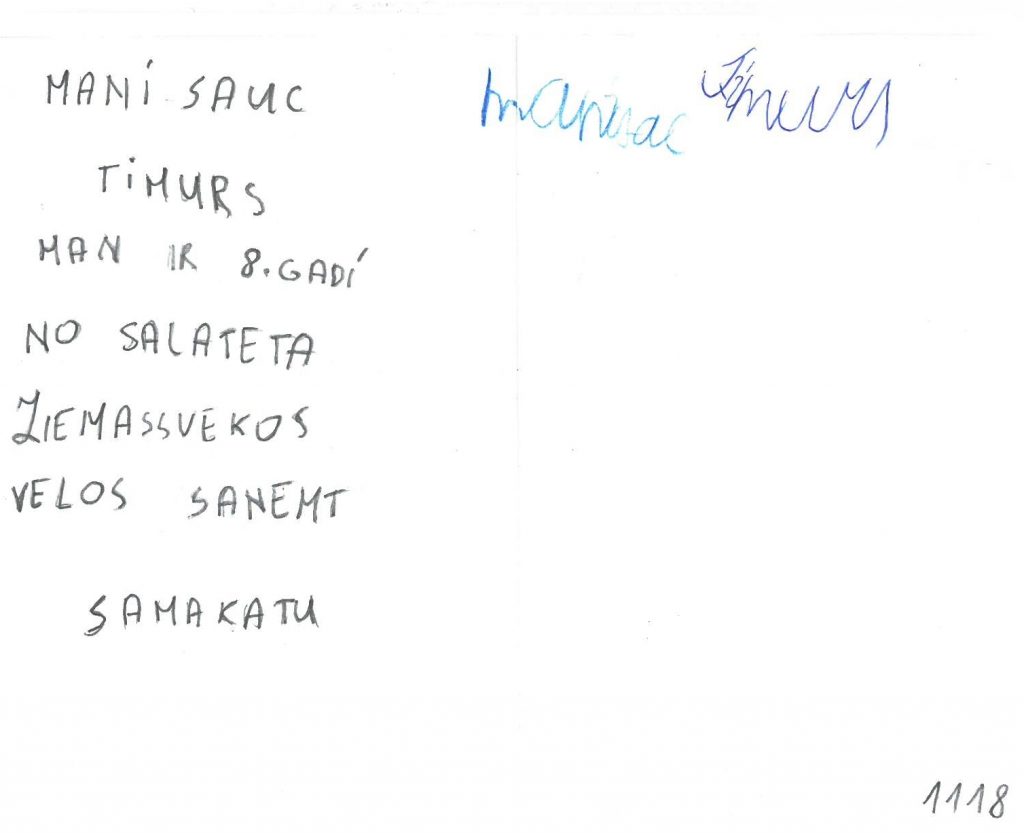 MANI SAUC
TIMURS
MAN IR 8. GADI
NO SALATETA
ZIEMASSVEKOS
VELOS SANEMT
SAMAKATU
manisauc Timurs
1118